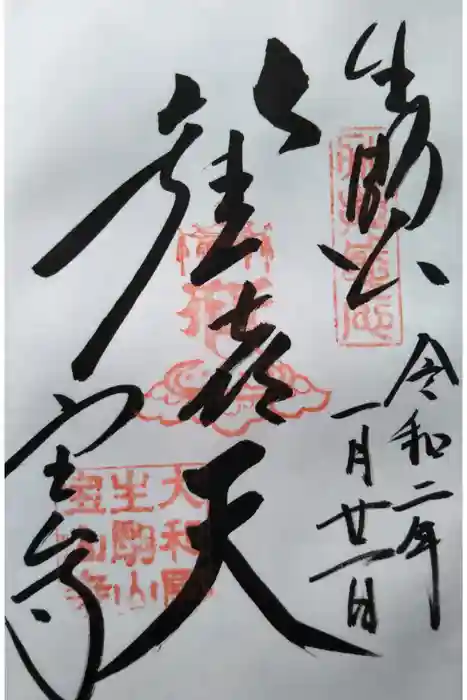 生駒山
令和二年
一月廿一日
歓喜天
宝山寺
大和國
生駒山
寳山寺